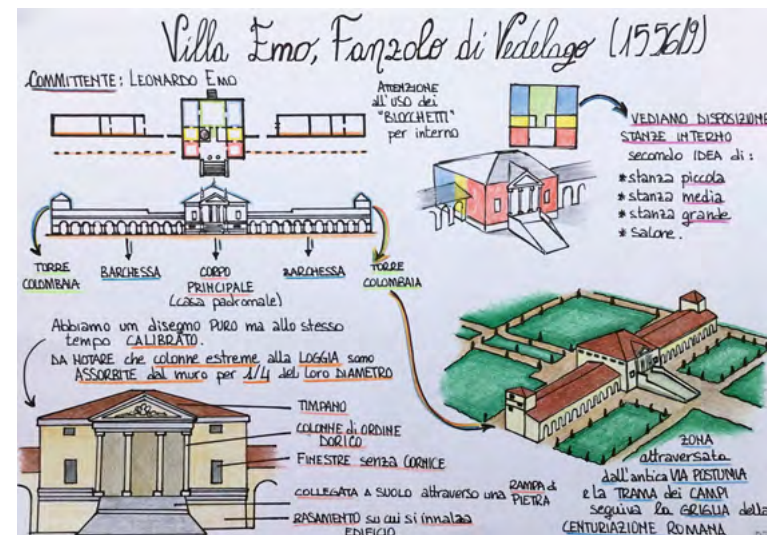 Villa Emo, Fanzolo di Vedelago (1556/9)
COMMITTENTE: LEONARDO EMO
ATTENZIONE
all'USO dei
"BLOCCHETTI"
per interno
VEDIAMO DISPOSIZIONE
STANZE INTERNO
secondo IDEA di:
*stanza piccola
*stanza media
*stanza grande
*salone.
TORRE
COLOMBAIA
BARCHESSA
CORPO
PRINCIPALE
(casa padronale)
BARCHESSA
TORRE
COLOMBAIA
Abbiamo un disegno PURO ma allo stesso
tempo CALIBRATO.
DA NOTARE che colonne estreme alla LOGGIA sono
ASSORBITE dal muro per 1/4 del loro DIAMETRO
TIMPANO
COLONNE di ORDINE
DORICO
FINESTRE senza CORNICE
COLLEGATA A SUOLO attraverso una RAMPA di
PIETRA
BASAMENTO su cui si innalza
EDIFICIO
ZONA
attraversata
dall'antica VIA POSTUMIA
e la TRAMA dei CAMPI
seguiva la GRIGLIA della
CENTURIAZIONE ROMANA